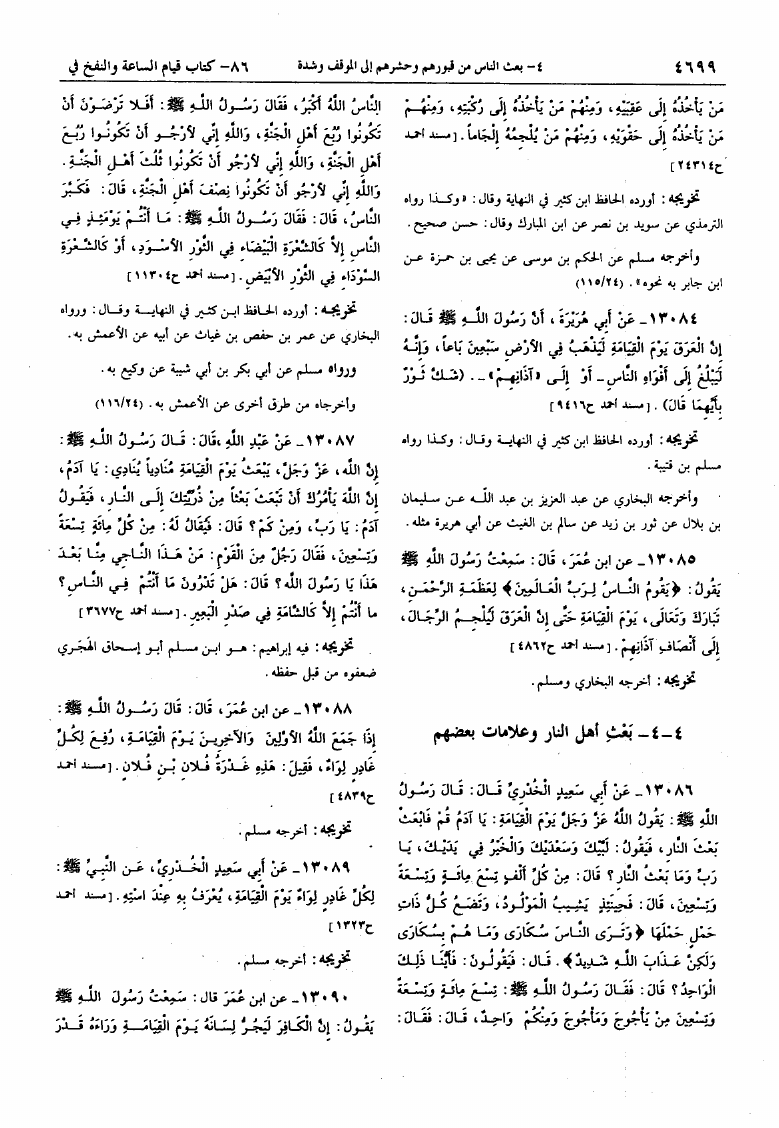 ٤٦٩٩ ٤- بعث الناس من قبورهم وحشرهم إلى الموقف وشدة ٨٦- كتاب قيام الساعة والنفخ في
مَنْ يَأْخُذُهُ إِلَى عَقِبَيْهِ، وَمِنْهُمْ مَنْ يَأْخُذُهُ إِلَى رُكْبَتِهِ، وَمِنْهُـمْ
مَنْ يَأْخُذُهُ إِلَى حَقْوَيْهِ، وَمِنْهُمْ مَنْ يُلْجِمُهُ إِلْجَاماً. [مسند احمد
ح٢٤٣١٤]
تخريجه: أورده الحافظ ابن كثير في النهاية وقال: «وكـذا رواه
الترمذي عن سويد بن نصر عن ابن المبارك وقال: حسن صحيح.
وأخرجه مسلم عن الحكم بن موسى عن يحيى بن حمزة عـن
ابن جابر به نحوه». (١١٥/٢٤)
١٣٠٨٤- عَنْ أَبِي هُرَيْرَةَ، أَنَّ رَسُولَ اللَّـهِ ﷺ قَـالَ:
إِنَّ الْعَرَقَ يَوْمَ الْقِيَامَةِ لَيَذْهَبُ فِي الأَرْضِ سَبْعِينَ بَاعاً، وَإِنَّـهُ
لَيَبْلُغُ إِلَى أَفْوَاهِ النَّاسِ- أَوْ إِلَـى «آذَانِهِـمْ»-. (شَـكَّ ثَـوْرٌ
بِأَيِّهِمَا قَالَ). [مسند احمد ح٩٤١٦]
تخريجه: أورده الحافظ ابن كثير في النهايـة وقـال: وكـذا رواه
مسلم بن قتيبة.
وأخرجه البخاري عن عبد العزيز بن عبد اللـه عـن سـليمان
بن بلال عن ثور بن زيد عن سالم بن الغيث عن أبي هريرة مثله.
١٣٠٨٥- عن ابن عُمَرَ، قَالَ: سَمِعْتُ رَسُولَ اللَّهِ ﷺ
يَقُولُ: ﴿يَقُومُ النَّـاسُ لِـرَبِّ الْعَـالَمِينَ﴾ لِعَظَمَـةِ الرَّحْمَـنِ،
تَبَارَكَ وَتَعَالَى، يَوْمَ الْقِيَامَةِ حَتَّى إِنَّ الْعَرَقَ لَيُلْجِـمُ الرِّجَالَ،
إِلَى أَنْصَافِ آذَانِهِمْ. [مسند احمد ح٤٨٦٢]
تخريجه: أخرجه البخاري ومسلم.
٤-٤- بَعْثِ أهل النار وعلامات بعضهم
١٣٠٨٦- عَنْ أَبِي سَعِيدٍ الْخُدْرِيِّ قَـالَ: قَـالَ رَسُـولُ
اللَّهِ ﷺ: يَقُولُ اللَّهُ عَزَّ وَجَلَّ يَوْمَ الْقِيَامَةِ: يَا آدَمُ قُمْ فَابْعَثْ
بَعْثَ النَّارِ، فَيَقُولُ: لَبَّيْكَ وَسَعْدَيْكَ وَالْخَيْرُ فِي يَدَيْـكَ، يَـا
رَبِّ وَمَا بَعْثُ النَّارِ؟ قَالَ: مِنْ كُلِّ أَلْفٍ تِسْعَ مِائَـةٍ وَتِسْـعَةً
وَتِسْعِينَ، قَالَ: فَحِينَئِذٍ يَشِيبُ الْمَوْلُـودُ، وَتَضَـعُ كُـلُّ ذَاتِ
حَمْلٍ حَمْلَهَا ﴿وَتَـرَى النَّـاسَ سُـكَارَى وَمَـا هُـمْ بِسُكَارَى
وَلَكِنَّ عَـذَابَ اللَّـهِ شَـدِيدٌ﴾. قـال: فَيَقُولُـونَ: فَأَيُّنَـا ذَلِـكَ
الْوَاحِدُ؟ قَالَ: فَقَـالَ رَسُـولُ اللَّـهِ ﷺ: تِسْـعَ مِائَـةٍ وَتِسْـعَةً
وَتِسْعِينَ مِنْ يَأْجُوجَ وَمَأْجُوجَ وَمِنْكُمْ وَاحِـدٌ، قَـالَ: فَقَـالَ:
النَّاسُ اللَّهُ أَكْبَرُ، فَقَالَ رَسُـولُ اللَّـهِ ﷺ: أَفَـلا تَرْضَـوْنَ أَنْ
تَكُونُوا رُبُعَ أَهْلِ الْجَنَّةِ، وَاللَّهِ إِنِّي لأَرْجُـو أَنْ تَكُونُـوا رُبُـعَ
أَهْلِ الْجَنَّةِ، وَاللَّهِ إِنِّي لأَرْجُو أَنْ تَكُونُوا ثُلُثَ أَهْـلِ الْجَنَّـةِ.
وَاللَّهِ إِنِّي لأَرْجُو أَنْ تَكُونُوا نِصْفَ أَهْلِ الْجَنَّةِ، قَالَ: فَكَبَّرَ
النَّاسُ، قَالَ: فَقَالَ رَسُـولُ اللَّـهِ ﷺ: مَـا أَنْتُـمْ يَوْمَئِـذٍ فِـي
النَّاسِ إِلاَّ كَالشَّعْرَةِ الْبَيْضَاءِ فِي الثَّوْرِ الأَسْـوَدِ، أَوْ كَالشَّعْرَةِ
السَّوْدَاءِ فِي الثَّوْرِ الأَبْيَضِ. [مسند احمد ح١١٣٠٤]
تخريجه: أورده الحـافظ ابـن كثـير في النهايـة وقـال: ورواه
البخاري عن عمر بن حفص بن غياث عن أبيه عن الأعمش به.
ورواه مسلم عن أبي بكر بن أبي شيبة عن وكيع به.
وأخرجاه من طرق أخرى عن الأعمش به. (١١٦/٢٤)
١٣٠٨٧- عَنْ عَبْدِ اللَّهِ، قَالَ: قَـالَ رَسُـولُ اللَّـهِ ﷺ:
إِنَّ اللَّه، عَزَّ وَجَلَّ، يَبْعَثُ يَوْمَ الْقِيَامَةِ مُنَادِياً يُنَادِي: يَا آدَمُ،
إِنَّ اللَّهَ يَأْمُرُكَ أَنْ تَبْعَثَ بَعْثاً مِنْ ذُرِّيَّتِكَ إِلَـى النَّـارِ، فَيَقُولُ
آدَمُ: يَا رَبِّ، وَمِنْ كَمْ؟ قَالَ: فَيُقَالُ لَهُ: مِنْ كُلِّ مِائَةٍ تِسْعَةً
وَتِسْعِينَ، فَقَالَ رَجُلٌ مِنَ الْقَوْمِ: مَنْ هَـذَا النَّـاجِي مِنَّـا بَعْـدَ
هَذَا يَا رَسُولَ اللَّه؟ قَالَ: هَلْ تَدْرُونَ مَا أَنْتُمْ فِـي النَّـاسِ؟
ما أَنْتُمْ إِلاَّ كَالشَّامَةِ فِي صَدْرِ الْبَعِيرِ. [مسند احمد ح٣٦٧٧]
تخريجه: فيه إبراهيم: هـو ابـن مسلم أبـو إسحاق الهَجَري
ضعفوه من قبل حفظه.
١٣٠٨٨- عن ابن عُمَرَ، قَالَ: قَالَ رَسُـولُ اللَّـهِ ﷺ:
إِذَا جَمَعَ اللَّهُ الأَوَّلِينَ وَالآخِرِيـنَ يَـوْمَ الْقِيَامَـةِ، رُفِـعَ لِكُـلِّ
غَادِرٍ لِوَاءٌ، فَقِيلَ: هَذِهِ غَـدْرَةُ فُـلانِ بْـنِ فُـلانٍ. [مسـند احمد
ح٤٨٣٩]
تخريجه: أخرجه مسلم.
١٣٠٨٩- عَنْ أَبِي سَعِيدٍ الْخُـدْرِيِّ، عَـنِ النَّبِـيِّ ﷺ:
لِكُلِّ غَادِرٍ لِوَاءٌ يَوْمَ الْقِيَامَةِ، يُعْرَفُ بِهِ عِنْدَ اسْتِهِ. [مسـند احمد
ح١١٣٢٣]
تخريجه: أخرجه مسلم.
١٣٠٩٠- عن ابن عُمَرَ قال: سَـمِعْتُ رَسُـولَ اللَّـهِ ﷺ
يَقُولُ: إِنَّ الْكَـافِرَ لَيَجُرُّ لِسَانَهُ يَـوْمَ الْقِيَامَـةِ وَرَاءَهُ قَـدْرَ